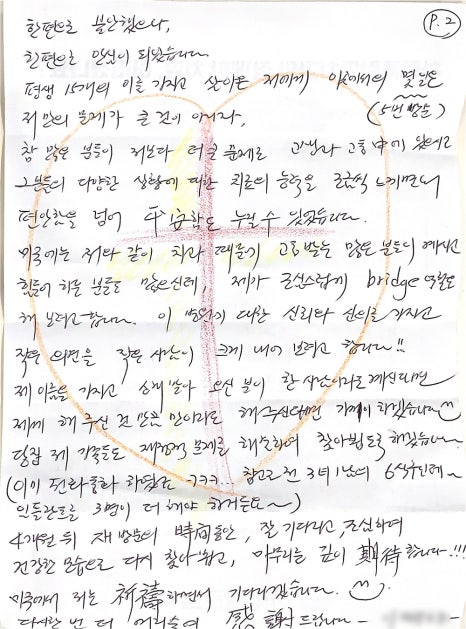 P.2
한편으로 불안했으나,
한편으로 안심이 되었습니다.
평생 15개의 이를 가지고 살아온 저에게 이곳에서의 몇 달은
(5번 방문)
저만의 문제가 클 것이 아니라,
참 많은 분들이 저보다 더 큰 문제로 고민과 고통 中에 있으시고
그분들의 다양한 상황에 대한 치료의 능력을 조금씩 느끼면서
편안함을 넘어 平安함도 누릴 수 있었습니다.
미국에는 저와 같이 치과 때문에 고통받는 많은 분들이 계시고
힘들어 하는 분들도 많으신데, 제가 조심스럽게 bridge 역할도
해 보려고 합니다. 이 병원에 대한 신뢰와 신의를 가지고
작은 의견을 작은 사람이 크게 내어 보려고 합니다!!
제 이름을 가지고 오신 분이 한 사람이라도 계신다면
제게 해 주신 것 만큼 만이라도 해주신다면 감사하겠습니다
당장 제 가족들도 문제를 해결하여 찾아뵙도록 하겠습니다
(이미 전화통화 하였고 ㅋㅋㅋ... 참고로 전 3녀 1남의 6식구인데~
임플란트를 3명이 더 해야 하거든요~)
4개월 뒤 재 방문의 時間동안, 잘 기다리고, 조심하며
건강한 모습으로 다시 찾아뵙고, 마무리를 깊이 期待합니다-!!!
미국에서 저는 祈禱하면서 기다리겠습니다.
다시한 번 더 머리숙여 感謝드립니다-